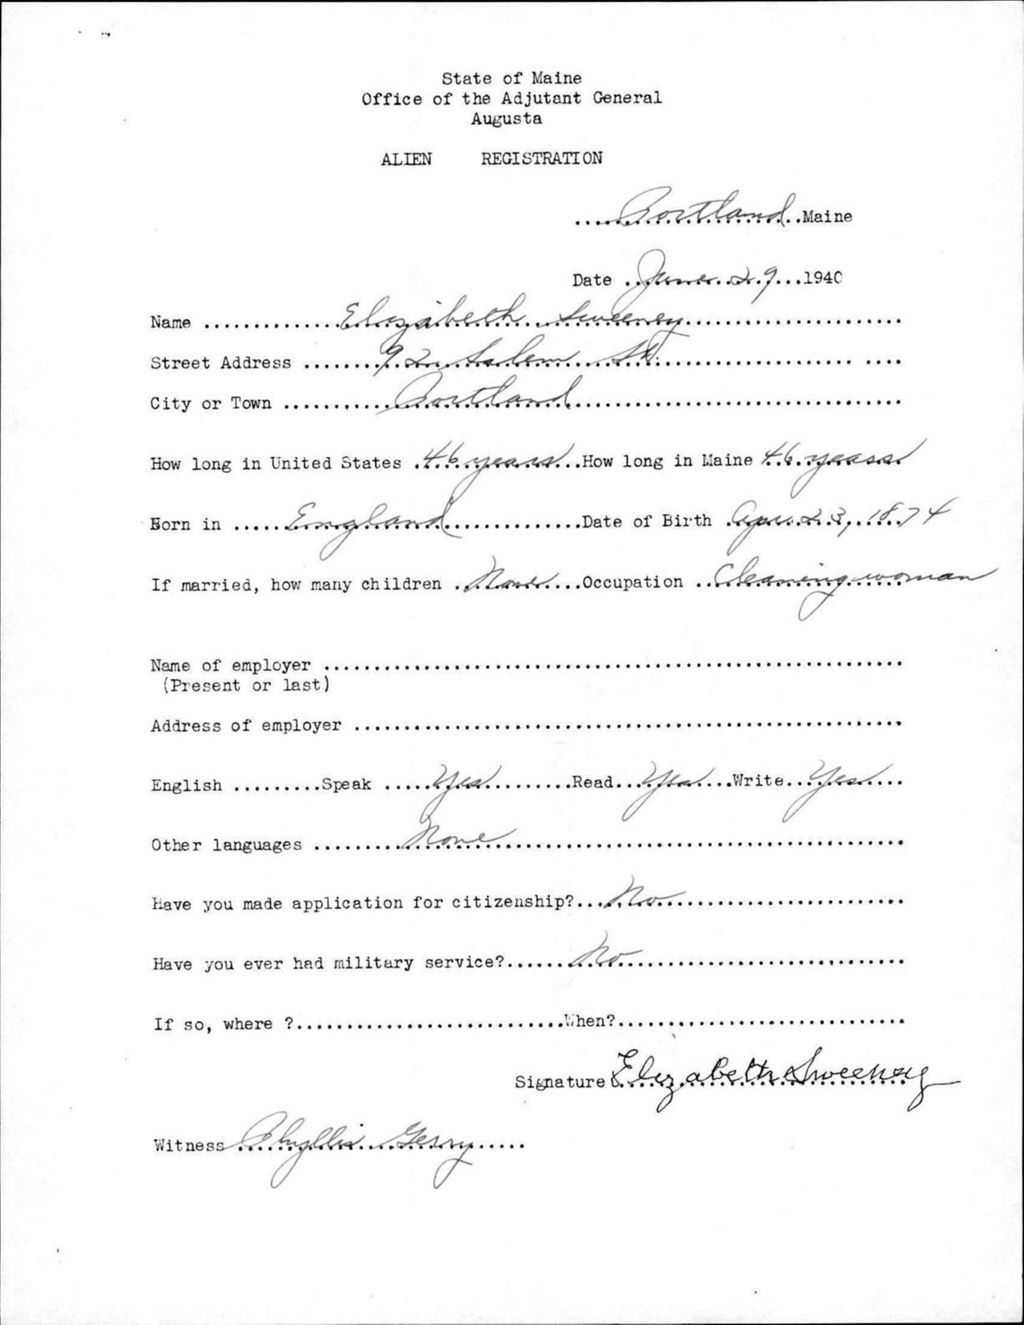 State of Maine
Office of the Adjutant General
Augusta
ALIEN REGISTRATION
Portland Maine
Date June 29 1940
Name Elizabeth Sweeney
Street Address 92 Salem St.
City or Town Portland
How long in United States 46 years How long in Maine 46 years
Born in England Date of Birth Apr. 23, 1874
If married, how many children None Occupation Cleaning woman
Name of employer
(Present or last)
Address of employer
English Speak Yes Read Yes Write Yes
Other languages None
Have you made application for citizenship? No
Have you ever had military service? No
If so, where ? When?
Signature Elizabeth Sweeney
Witness Phyllis Gerry